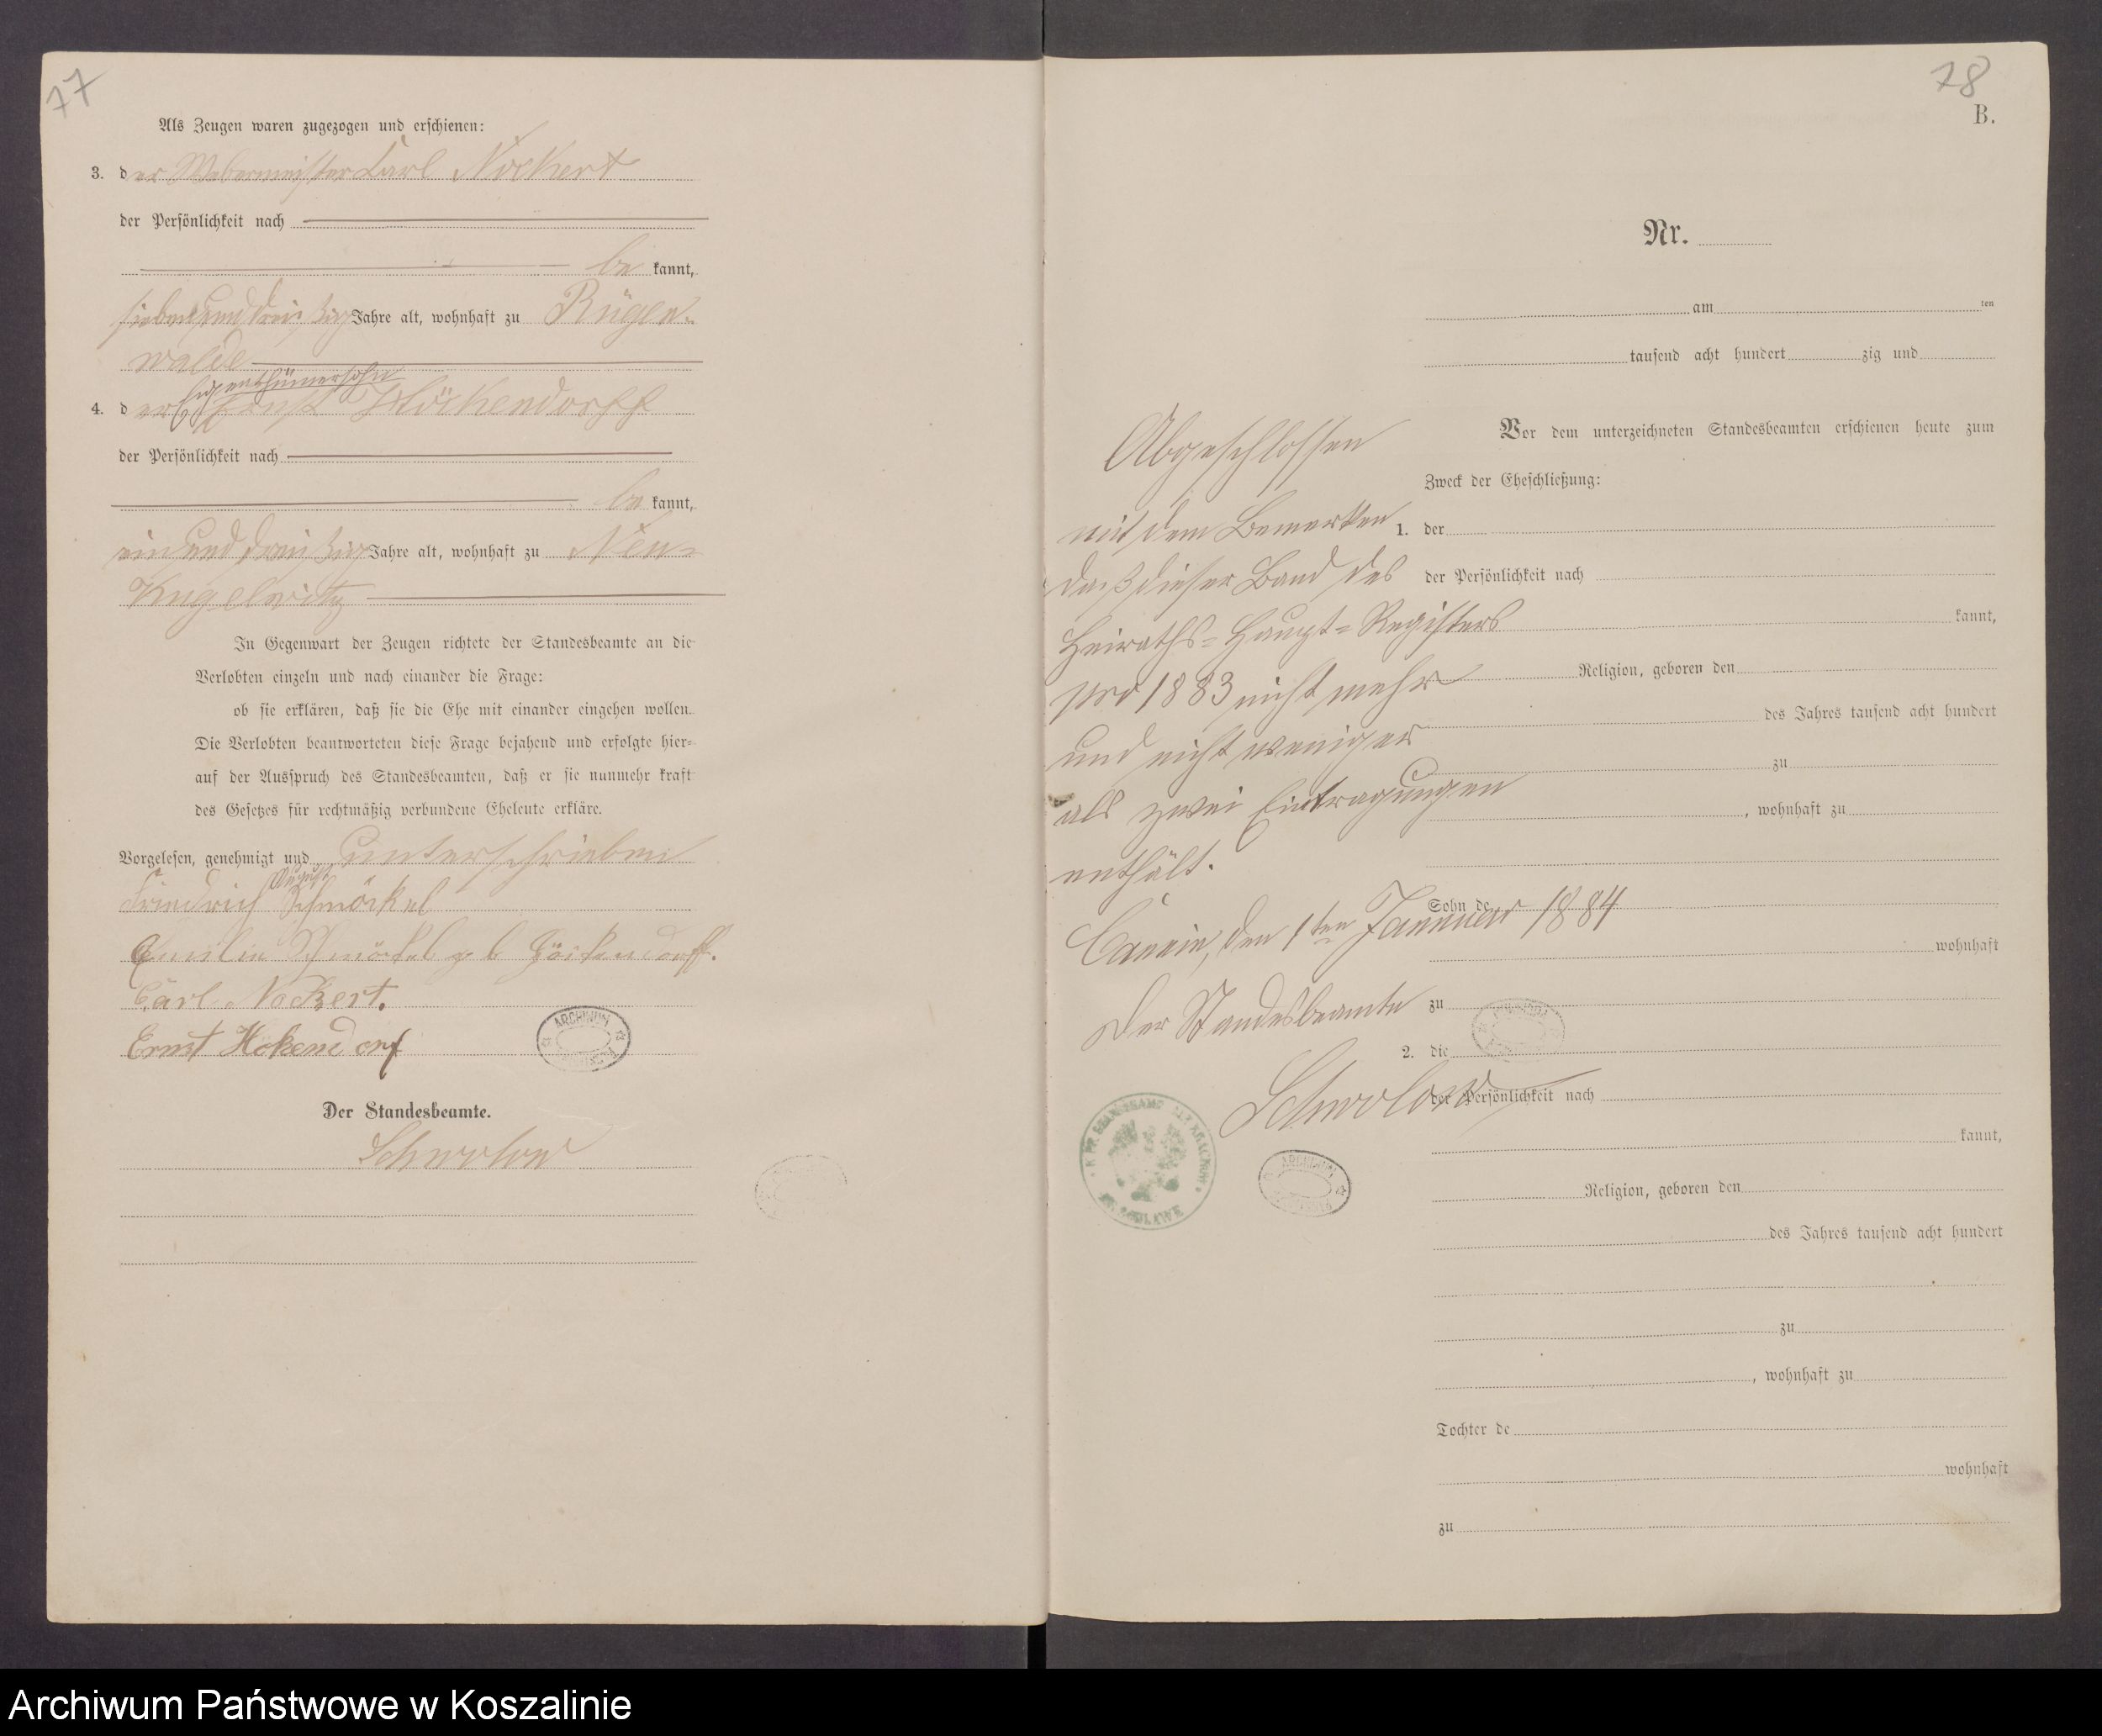 77
Als Zeugen waren zugezogen und erschienen:
3. der Webermeister Carl Nockert
der Persönlichkeit nach
be kannt,
siebenunddreißig Jahre alt, wohnhaft zu Rügen-
walde
Eigenthümersohn
4. der Ernst Höckendorff
der Persönlichkeit nach
be kannt,
einunddreißig Jahre alt, wohnhaft zu Neu-
Kugelwitz
In Gegenwart der Zeugen richtete der Standesbeamte an die
Verlobten einzeln und nach einander die Frage:
ob sie erklären, daß sie die Ehe mit einander eingehen wollen.
Die Verlobten beantworteten diese Frage bejahend und erfolgte hier-
auf der Ausspruch des Standesbeamten, daß er sie nunmehr kraft
des Gesetzes für rechtmäßig verbundene Eheleute erkläre.
Vorgelesen, genehmigt und unterschrieben
August
Friedrich Schmöckel
Emilie Schmöckel geb Höckendorff.
Carl Nockert.
Ernst Hökendorf
ARCHIWUM
Der Standesbeamte.
Schwolow
78
B.
Nr.
am ten
tausend acht hundert zig und
Vor dem unterzeichneten Standesbeamten erschienen heute zum
Zweck der Eheschließung:
1. der
der Persönlichkeit nach
kannt,
Religion, geboren den
des Jahres tausend acht hundert
zu
, wohnhaft zu
Sohn de
wohnhaft
zu
2. die
der Persönlichkeit nach
kannt,
Religion, geboren den
des Jahres tausend acht hundert
zu
, wohnhaft zu
Tochter de
wohnhaft
zu
Abgeschlossen
mit dem Bemerken
daß dieser Band des
Heiraths-Haupt-Registers
pro 1883 nicht mehr
und nicht weniger
als zwei Eintragungen
enthält.
Cannin, den 1ten Januar 1884
Der Standesbeamte
Schwolow
ARCHIWUM
Archiwum Państwowe w Koszalinie